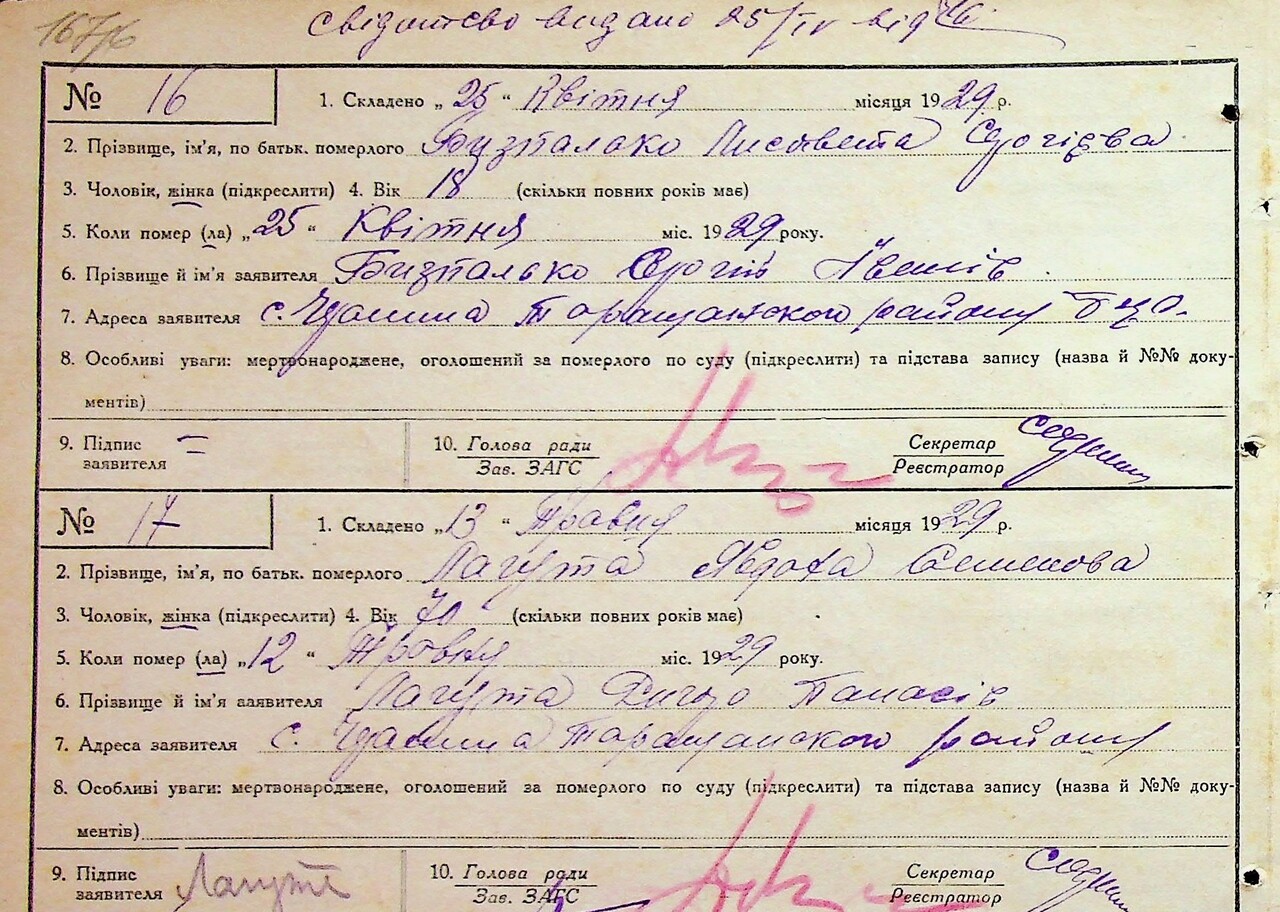 167/6 Свідоцтво видано 25/IV від
№ 16 1. Складено „ 25 “ Квітня місяця 1929 р.
2. Прізвище, ім'я, по батьк. померлого Бизпалько Лисавета Сергієва
3. Чоловік, жінка (підкреслити) 4. Вік 18 (скільки повних років має)
5. Коли помер (ла) „25 “ Квітня міс. 1929 року.
6. Прізвище й ім'я заявителя Бизпалько Сергій Іванів
7. Адреса заявителя с. Таращанского району
8. Особливі уваги: мертвонароджене, оголошений за померлого по суду (підкреслити) та підстава запису (назва й №№ доку-
ментів)
9. Підпис заявителя = 10. Голова ради Зав. ЗАГС Секретар Реєстратор
№ 17 1. Складено „13 “ Травня місяця 1929 р.
2. Прізвище, ім'я, по батьк. померлого Лагута Явдоха Семенова
3. Чоловік, жінка (підкреслити) 4. Вік 70 (скільки повних років має)
5. Коли помер (ла) „12 “ Травня міс. 1929 року.
6. Прізвище й ім'я заявителя Лагута Панасів
7. Адреса заявителя с. Таращанского району
8. Особливі уваги: мертвонароджене, оголошений за померлого по суду (підкреслити) та підстава запису (назва й №№ доку-
ментів)
9. Підпис заявителя Лагута 10. Голова ради Зав. ЗАГС Секретар Реєстратор